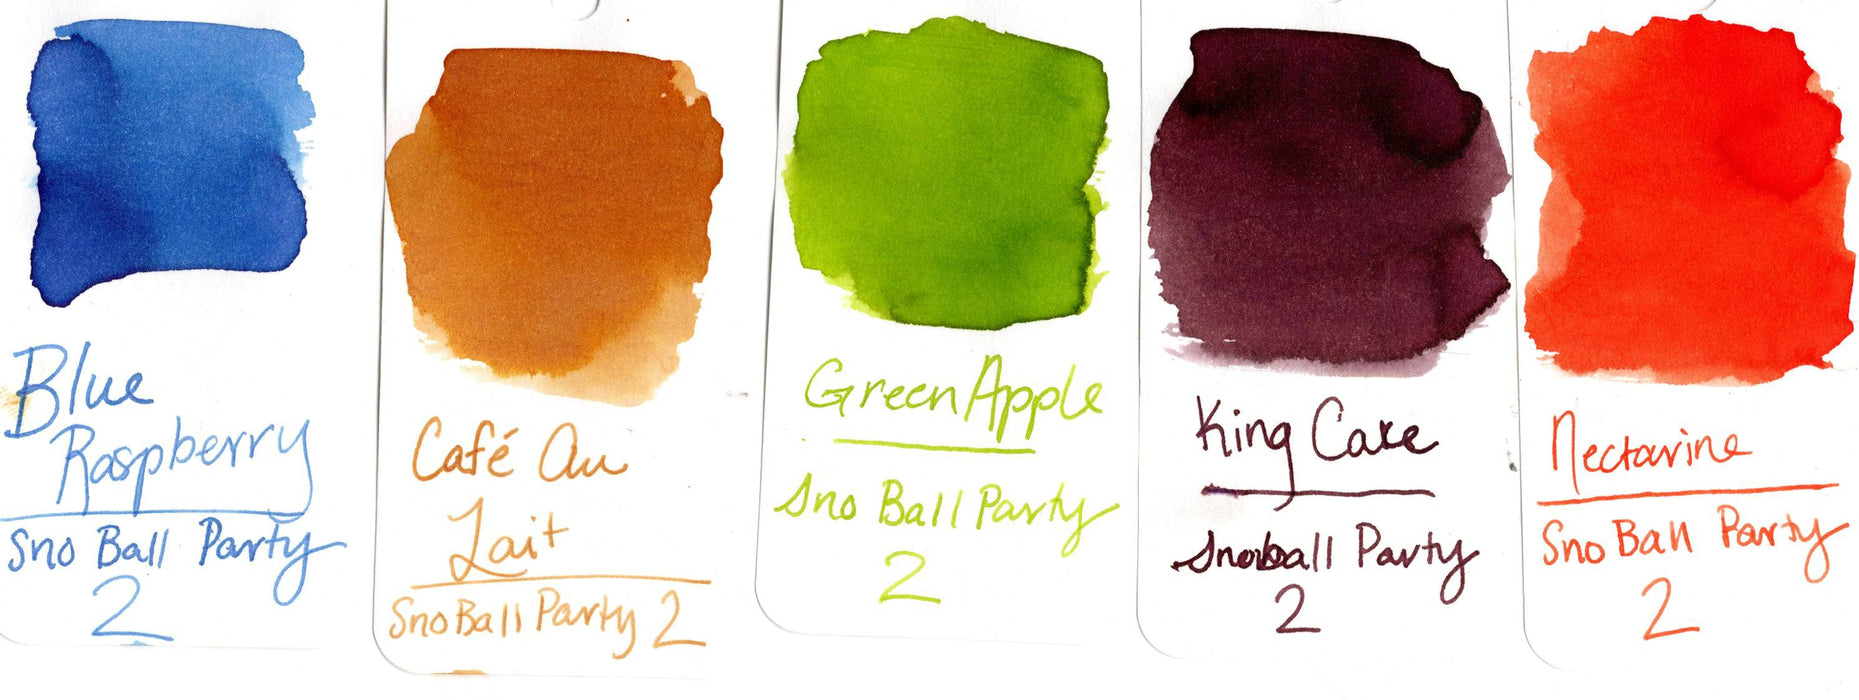 Blue
Raspberry
Sno Ball Party
2
Café Au
Lait
Sno Ball Party 2
Green Apple
Sno Ball Party
2
King Cake
Snoball Party
2
Nectarine
Sno Ball Party
2